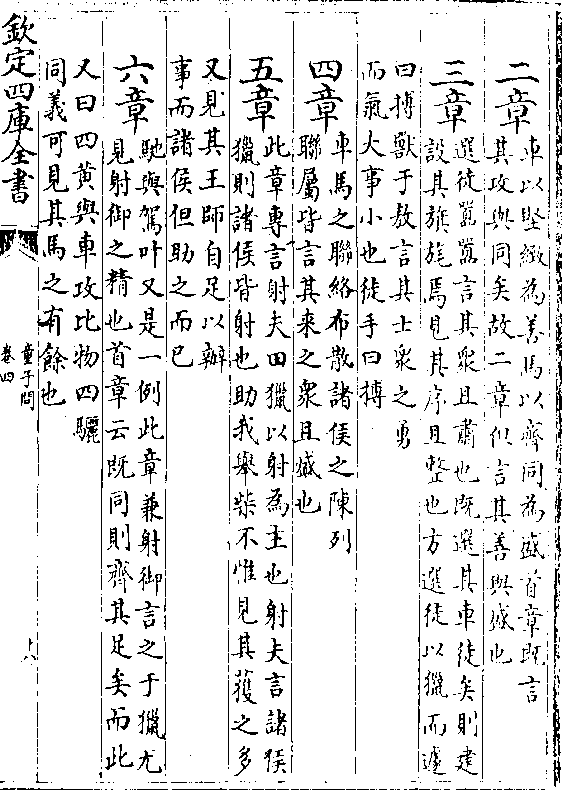 二章車以堅緻為善馬以齊同為盛首章既言
其攻與同矣故二章但言其善與盛也
三章選徒囂囂言其衆且肅也既選其車徒矣則建
設其旗旄焉見其序且整也方選徒以獵而遽
曰搏獸于敖言其士衆之勇
而氣大事小也徒手曰搏
四章車馬之聯絡布散諸侯之陳列
聯屬皆言其來之衆且盛也
五章此章專言射夫田獵以射為主也射夫言諸侯
獵則諸侯皆射也助我舉柴不惟見其獲之多
又見其王師自足以辦
事而諸侯但助之而已
六章馳與駕叶又是一例此章兼射御言之于獵尤
見射御之精也首章云既同則齊其足矣而此
又曰四黃與車攻比物四驪
同義可見其馬之有餘也
欽定四庫全書
童子問
卷四
十八